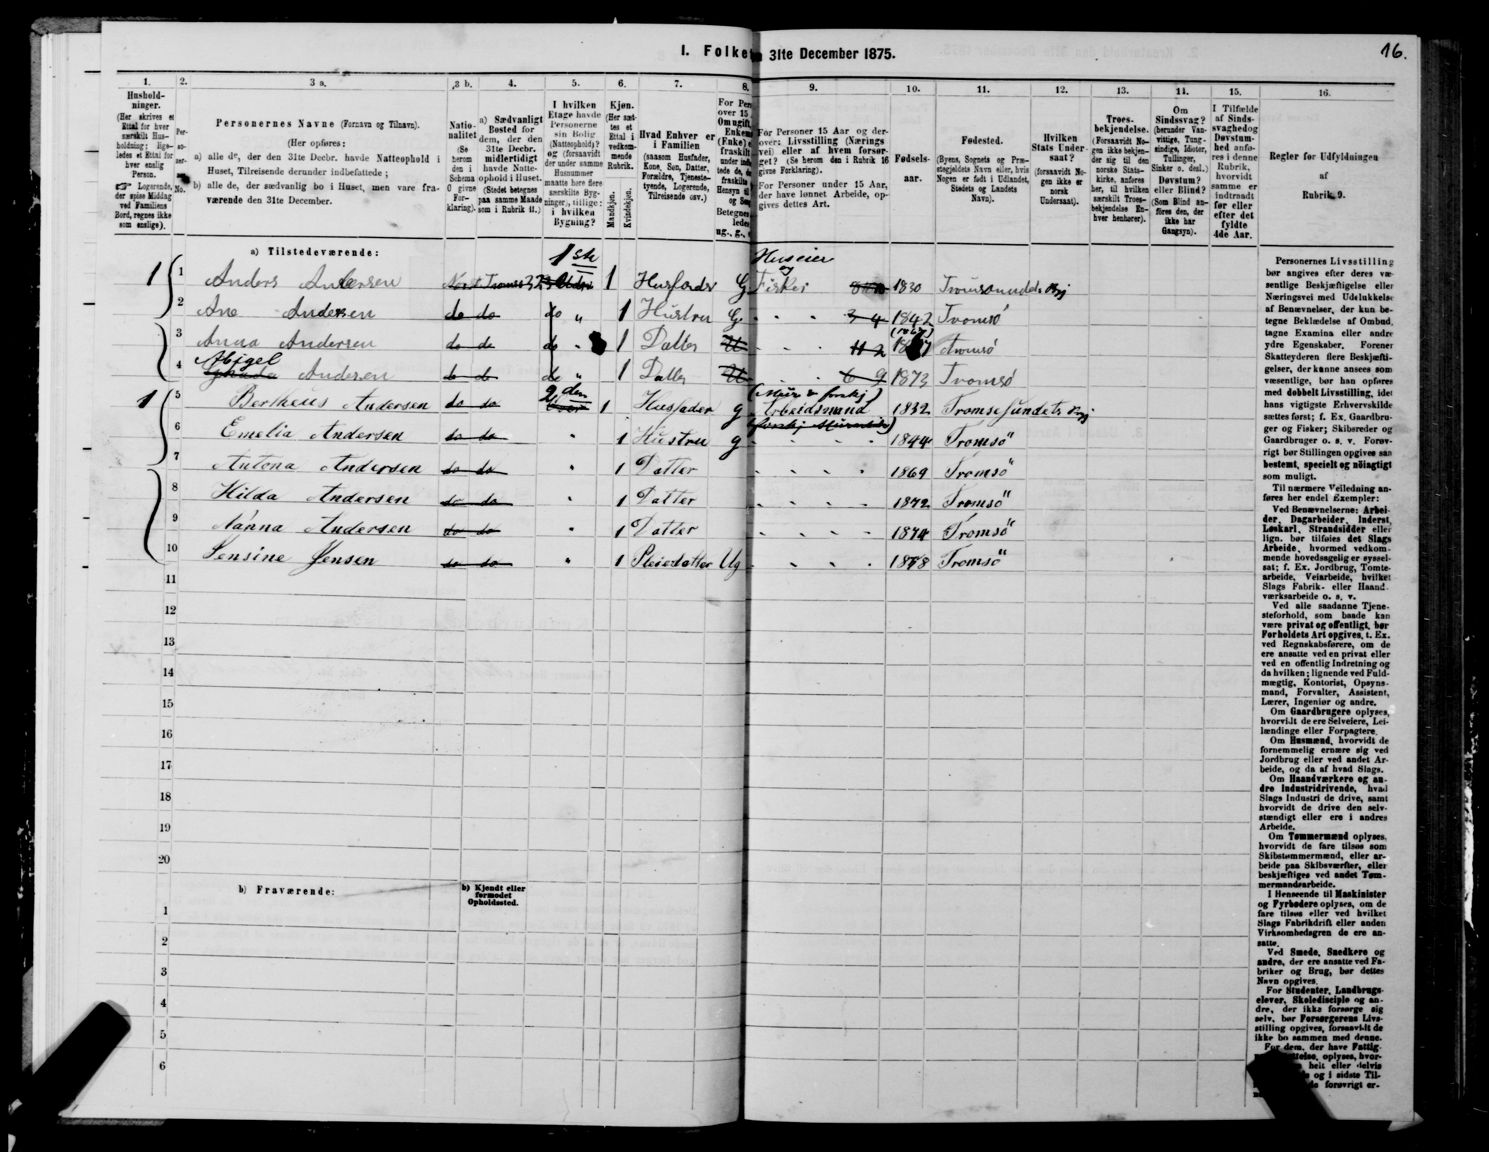 I. Folke
31te December 1875.
16.
1. 2. 3 a. 3 b. 4. 5. 6. 7. 8. 9. 10. 11. 12. 13. 14. 15. 16.
Personernes Navne (Fornavn og Tilnavn).
(Her opføres:
a) alle de, der den 31te Decbr. havde Natteophold i
Huset, Tilreisende derunder indbefattede;
b) alle de, der sædvanlig bo i Huset, men vare fra-
værende den 31te December.
Hushold-
ninger.
(Her skrives et
Ettal for hver
særskilt Hus-
holdning; lige-
ledes et Ettal for
hver enslig
Person.
Logerende,
der spise Middag
ved Familiens
Bord, regnes ikke
som enslige).
Natio-
nalitet
(Se
herom
den i
Schema
O givne
For-
klaring).
a) Sædvanligt
Bosted for
dem, der den
31te Decbr.
midlertidigt
havde Natte-
ophold i Huset.
(Stedet betegnes
paa samme Maade
som i Rubrik 11.)
I hvilken
Etage havde
Personerne
sin Bolig
(Natteophold)?
og (forsaavidt
der under samme
Husnummer
maatte høre flere
særskilte Byg-
ninger,) tillige:
i hvilken
Bygning?
Kjøn.
(Her sæt-
tes et
Ettal i
vedkom-
mende
Rubrik.
Mandkjøn.
Kvindekjøn.
Hvad Enhver er
i Familien
(saasom Husfader,
Kone, Søn, Datter,
Forældre, Tjeneste-
tyende, Logerende,
Tilreisende osv.)
For Personer 15 Aar og der-
over: Livsstilling (Nærings-
vei) eller af hvem forsør-
get? (Se herom den i Rubrik 16
givne Forklaring).
For Personer under 15 Aar,
der have lønnet Arbeide, op-
gives dettes Art.
Fødsels-
aar.
Fødested.
(Byens, Sognets og Præ-
stegjeldets Navn eller, hvis
Nogen er født i Udlandet,
Stedets og Landets
Navn).
Hvilken
Stats Under-
saat?
(forsaavidt No-
gen ikke er
norsk
Undersaat).
Troes-
bekjendelse.
(Forsaavidt No-
gen ikke bekjen-
der sig til den
norske Stats-
kirke, anføres
her, til hvilken
særskilt Troes-
bekjendelse En-
hver henhører).
Om
Sindssvag?
(herunder Van-
vittige, Tung-
sindige, Idioter,
Tullinger,
Sinker o. desl.)
Døvstum?
eller Blind?
(Som Blind an-
føres den, der
ikke har
Gangsyn).
I Tilfælde
af Sinds-
svaghed og
Døvstum-
hed anfø-
res i denne
Rubrik,
hvorvidt
samme er
indtraadt
før eller
efter det
fyldte
4de Aar.
Regler for Udfyldningen
af
Rubrik 9.
a) Tilstedeværende:
1 1 Anders Andersen 1 Husfader G Huseier og Fisker 1830 Tromsøsundets Prgj
2 Ane Andersen do do do „ 1 Hustru G 1842 Tromsø
3 Anna Andersen do do do „ 1 Datter (1867) Tromsø
4 Abigel Andersen do do do „ 1 Datter 1873 Tromsø
1 5 Bertheus Andersen do do 1 Husfader g Arbeidsmand 1832 Tromsøsundets Prgj
6 Emelia Andersen do do „ 1 Hustru g 1844 Tromsø
7 Antona Andersen do do „ 1 Datter 1869 Tromsø
8 Hilda Andersen do do „ 1 Datter 1872 Tromsø
9 Nanna Andersen do do „ 1 Datter 1874 Tromsø
10 Jensine Jensen do do „ 1 Pleiedatter Ug Tromsø
11
12
13
14
15
16
17
18
19
20
b) Fraværende:
b) Kjendt eller
formodet
Opholdssted.
1
2
3
4
5
6
Personernes Livsstilling
bør angives efter deres væ-
sentlige Beskjæftigelse eller
Næringsvei med Udelukkelse
af Benævnelser, der kun be-
tegne Beklædelse af Ombud,
tagne Examina eller andre
ydre Egenskaber. Forener
Skatteyderen flere Beskjæfti-
gelser, der kunne ansees som
væsentlige, bør han opføres
med dobbelt Livsstilling, idet
hans vigtigste Erhvervskilde
sættes først; f. Ex. Gaardbru-
ger og Fisker; Skibsreder og
Gaardbruger o. s. v. Forøv-
rigt bør Stillingen opgives saa
bestemt, specielt og nøiagtigt
som muligt.
Til nærmere Veiledning an-
føres her endel Exempler:
Ved Benævnelserne: Arbei-
der, Dagarbeider, Inderst,
Løskarl, Strandsidder eller
lign. bør tilføies det Slags
Arbeide, hvormed vedkom-
mende hovedsagelig er syssel-
sat; f. Ex. Jordbrug, Tomte-
arbeide, Veiarbeide, hvilket
Slags Fabrik- eller Haand-
værksarbeide o. s. v.
Ved alle saadanne Tjene-
steforhold, som baade kan
være privat og offentligt, bør
Forholdets Art opgives, t. Ex.
ved Regnskabsførere, om de
ere ansatte ved en privat eller
ved en offentlig Indretning og
da hvilken; lignende ved Fuld-
mægtig, Kontorist, Opsyns-
mand, Forvalter, Assistent,
Lærer, Ingeniør og andre.
Om Gaardbrugere oplyses,
hvorvidt de ere Selveiere, Lei-
lændinge eller Forpagtere.
Om Husmænd, hvorvidt de
fornemmelig ernære sig ved
Jordbrug eller ved andet Ar-
beide, og da af hvad Slags.
Om Haandværkere og an-
dre Industridrivende, hvad
Slags Industri de drive, samt
hvorvidt de drive den selv-
stændigt eller ere i andres
Arbeide.
Om Tømmermænd oplyses,
hvorvidt de fare tilsøs som
Skibstømmermænd, eller ar-
beide paa Skibsværfter, eller
beskjæftiges ved andet Tøm-
mermandsarbeide.
I Henseende til Maskinister
og Fyrbødere oplyses, om de
fare tilsøs eller ved hvilket
Slags Fabrikdrift eller anden
Virksomhedsgren de ere an-
satte.
Ved Smede, Snedkere og
andre, der ere ansatte ved Fa-
briker og Brug, bør dettes
Navn opgives.
For Studenter, Landbrugs-
elever, Skoledisciple og an-
dre, der ikke forsørge sig
selv, bør Forsørgerens Livs-
stilling opgives, forsaavidt de
ikke bo sammen med denne.
For dem, der have Fattig-
oplyses, hvor-
helt eller delvis
og i sidste Til-
forøvrigt er-